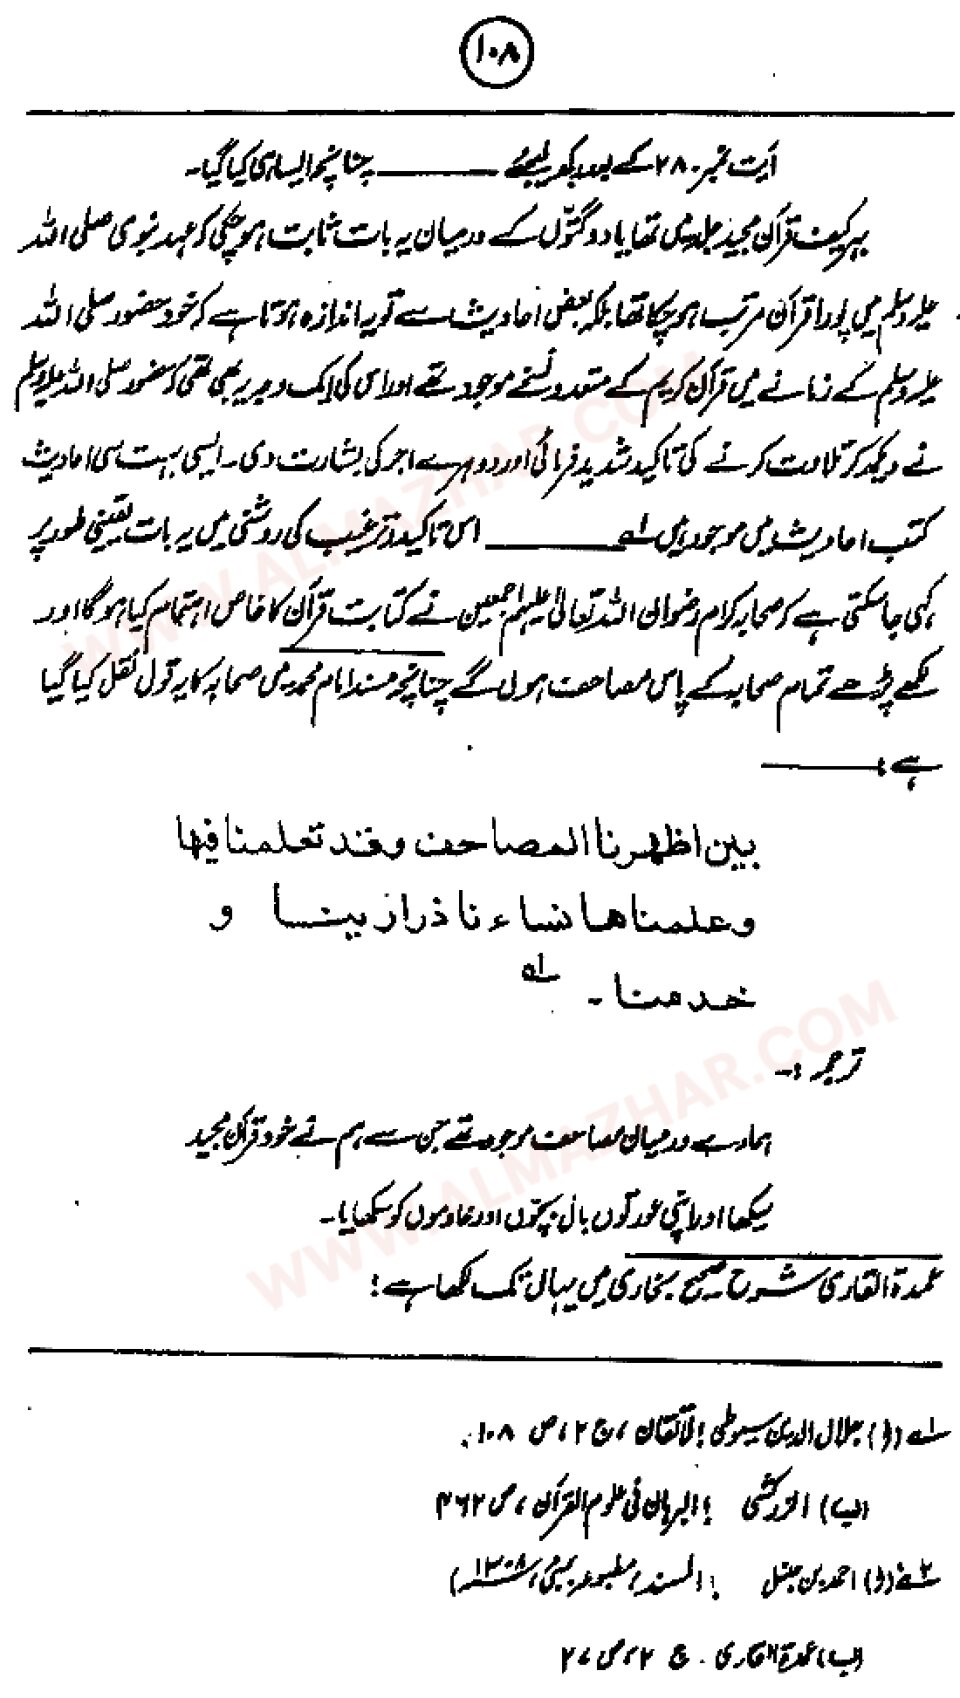 ۱۰۸
آیت نمبر ۲۸۰ کے بعد لکھ لیجئے ——— چنانچہ ایسا ہی کیا گیا۔
بہر کیف قرآن مجید جلد میں تھا یا دو گتّوں کے درمیان یہ بات ثابت ہو چکی کہ عہد نبوی صلی اللہ
علیہ وسلم میں پورا قرآن مرتب ہو چکا تھا بلکہ بعض احادیث سے تو یہ اندازہ ہوتا ہے کہ خود حضور صلی اللہ
علیہ وسلم کے زمانے میں قرآن کریم کے متعدد نسخے موجود تھے اور اس کی ایک وجہ یہ بھی تھی کہ حضور صلی اللہ علیہ وسلم
نے دیکھ کر تلاوت کرنے کی تاکید شدید فرمائی اور دوہرے اجر کی بشارت دی۔ ایسی بہت سی احادیث
کتب احادیث میں موجود ہیں ۱ے ——— اس تاکید و ترغیب کی روشنی میں یہ بات یقینی طور پر
کہی جا سکتی ہے کہ صحابہ کرام رضوان اللہ تعالیٰ علیہم اجمعین نے کتابت قرآن کا خاص اہتمام کیا ہوگا اور
لکھے پڑھے تمام صحابہ کے پاس مصاحف ہوں گے چنانچہ مسند امام محمد میں صحابہ کا یہ قول نقل کیا گیا
ہے: ———
بین اظهرنا المصاحف وقد تعلمنا فیها
وعلمناها نساءنا ذرارینا و
خدمنا۔ ۱ے
ترجمہ :-
ہمارے درمیان مصاحف موجود تھے جن سے ہم نے خود قرآن مجید
سیکھا اور اپنی عورتوں بال بچّوں اور خادموں کو سکھایا۔
عمدۃ القاری شرح صحیح بخاری میں یہاں تک لکھا ہے:
۱ے (ا) جلال الدین سیوطی : الاتقان ، ج ۲، ص ۱۰۸
(ب) الزرکشی : البرہان فی علوم القرآن ، ص ۴۶۲
۲ے (ا) احمد بن حنبل : المسند ، مطبوعہ بمبئی ، ۱۳۰۸ھ)
(ب) عمدۃ القاری۔ ج ۲، ص ۲۷
WWW.ALMAZHAR.COM
WWW.ALMAZHAR.COM